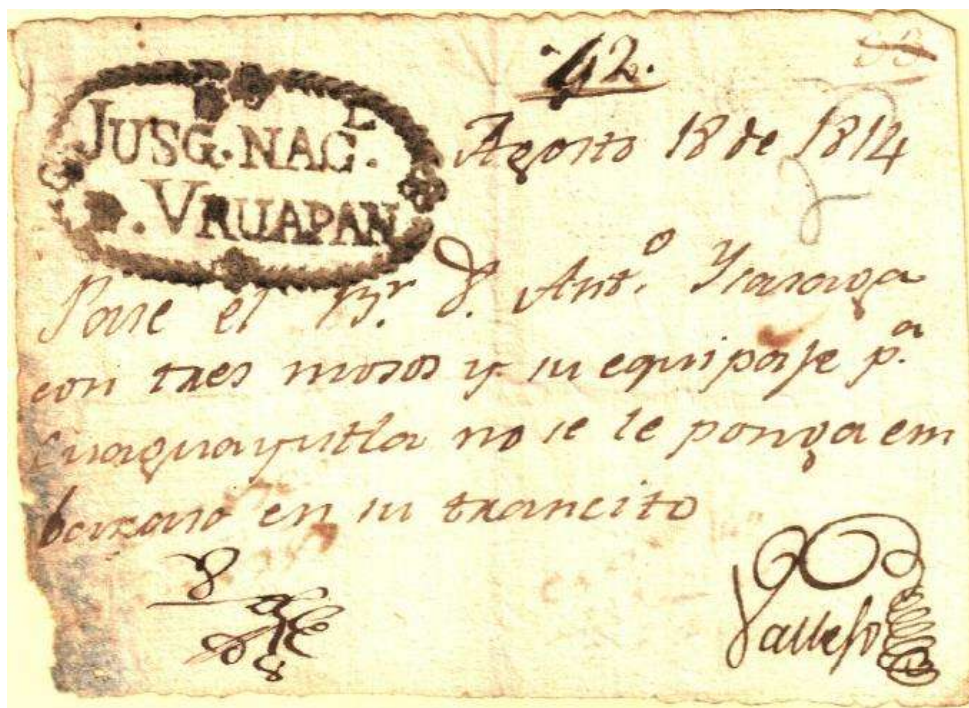 42.
JUSG. NAC.L
D. VRUAPAN
Agosto 18 de 1814
Pase el Br. D. Anto. Ysasaga
con tres mosos y su equipaje pa.
Cuaguayutla no se le ponga em
baraso en su trancito
Vallejo